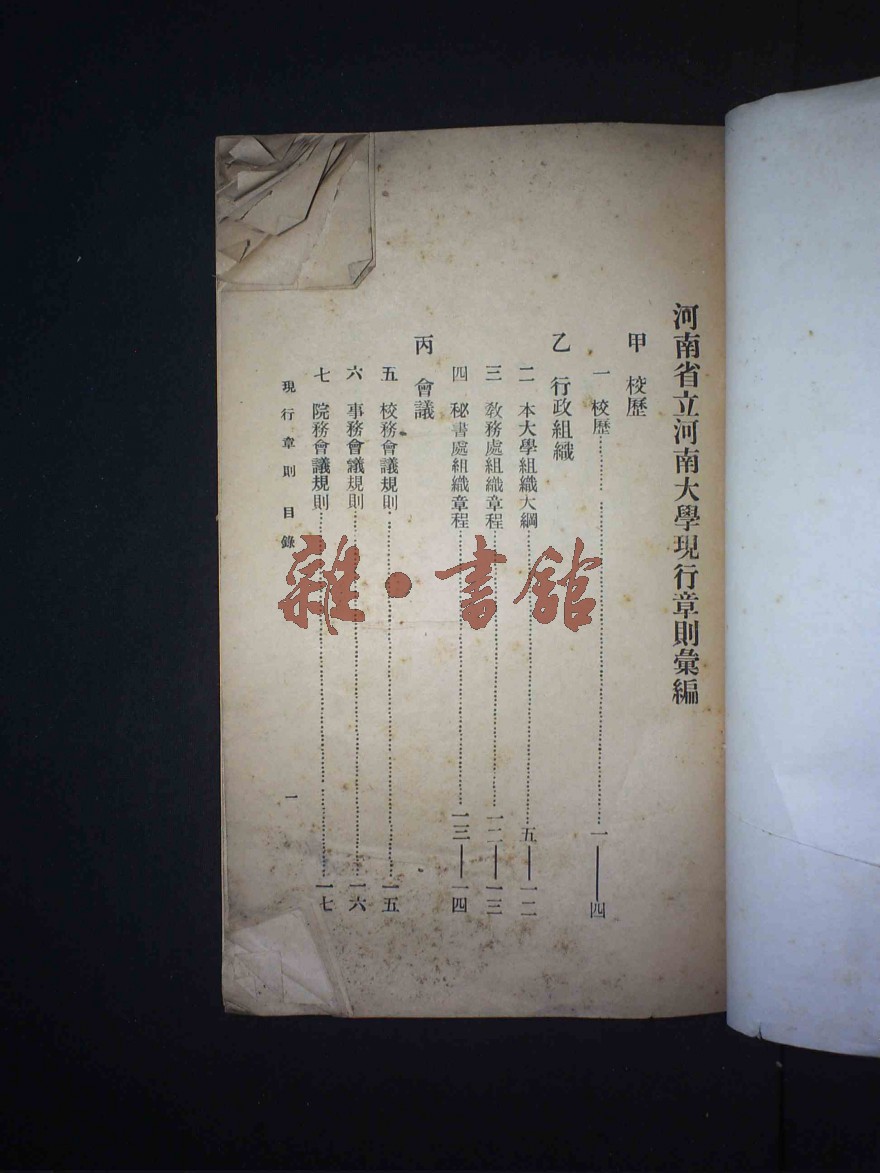 河南省立河南大學現行章則彙編
甲 校歷
一 校歷……一——四
乙 行政組織
二 本大學組織大綱……五——一二
三 教務處組織章程……一二——一三
四 秘書處組織章程……一三——一四
丙 會議
五 校務會議規則……一五
六 事務會議規則……一六
七 院務會議規則……一七
現行章則目錄 一
雜·書館